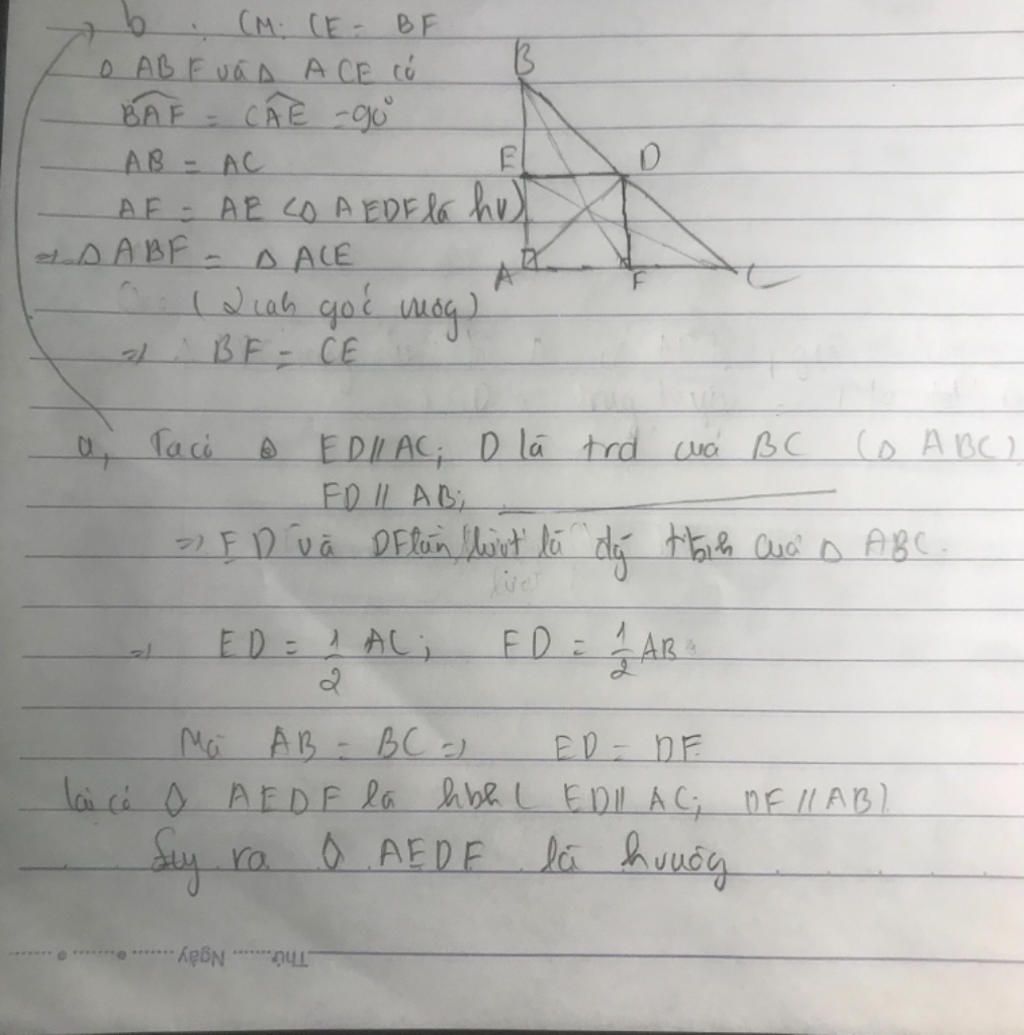 b : CM: CE = BF
Δ ABF và Δ ACE có
BAF = CAE = 90°
AB = AC
AF = AE (◊ AEDF là hv)
=> Δ ABF = Δ ACE
(2 cah góc vuôg)
=> BF = CE
B
E
D
A
F
C
a, Ta có ED // AC; D là trđ cuả BC (Δ ABC)
FD // AB;
=> ED và DF lần lượt là đg tbìh cuả Δ ABC.
=> ED = 1/2 AC; FD = 1/2 AB
Mà AB = BC => ED = DF
lại có ◊ AEDF là hbh ( ED // AC; DF // AB)
Suy ra ◊ AEDF là hvuôg
Thứ Ngày